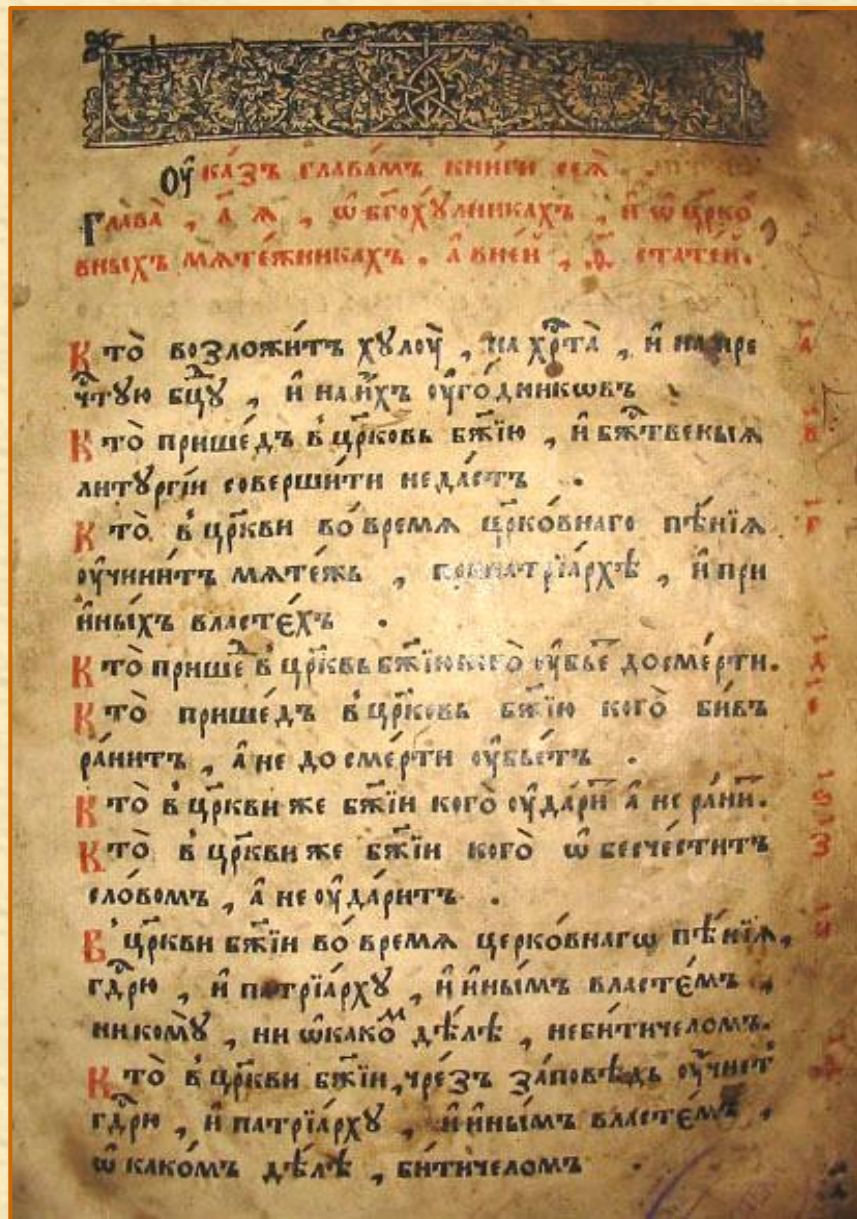 Оу҆ка́зъ глава́мъ кни́ги сеѧ̀ .
Глава̀ , а҃ ѧ , ѡ҆ бг҃охꙋ́лникахъ , и҆ ѡ҆ цр҃ко́
вныхъ мѧте́жникахъ . а҆ в̾не́й , ѳ҃ стате́й .
Кто̀ возложи́тъ хꙋлꙋ̀ , на хрⷭ҇та̀ , и҆ на пре а҃
чⷭ҇тꙋю бцⷣꙋ , и҆ на и҆́хъ оу҆го́дникѡвъ
Кто̀ прише́дъ в̾ цр҃ковь бж҃їю , и҆ бжⷭ҇твеныѧ в҃
литꙋргі́и соверши́ти не да́стъ .
Кто̀ в̾ цр҃кви во́ времѧ цр҃ко́внаго пѣ́нїѧ г҃
оу҆чини́тъ мѧте́жь , при патрїа́рхѣ , и҆ при
и҆ны́хъ власте́хъ .
Кто̀ прише́ⷣ в̾ цр҃квь бж҃їю кого̀ оу҆бье́ до сме́рти . д҃
Кто̀ прише́дъ в̾ цр҃ковь бж҃їю кого̀ би́въ е҃
ра́нитъ , а҆ не до сме́рти оу҆бье́тъ .
Кто̀ в̾ цр҃кви же бж҃їи кого̀ оу҆да́риⷮ а҆ не ра́ниⷮ . ѕ҃
Кто̀ в̾ цр҃кви же бж҃їи кого̀ ѡ҆бесче́ститъ з҃
сло́вомъ , а҆ не оу҆да́ритъ .
В̾ цр҃кви бж҃їи во́ времѧ церко́внагѡ пѣ́нїѧ , и҃
гдⷭ҇рю , и҆ патрїа́рхꙋ , и҆ и҆ны́мъ власте́мъ ,
никомꙋ̀ , ни ѡ҆ како́ⷨ дѣ́лѣ , не би́ти челомъ .
Кто̀ в̾ цр҃кви бж҃їи , чре́зъ за́повѣдь оу҆чнетⸯ ѳ҃
гдⷭ҇рю , и҆ патрїа́рхꙋ , и҆ и҆ны́мъ власте́мъ ,
ѡ҆ како́мъ дѣ́лѣ , би́ти челомъ .